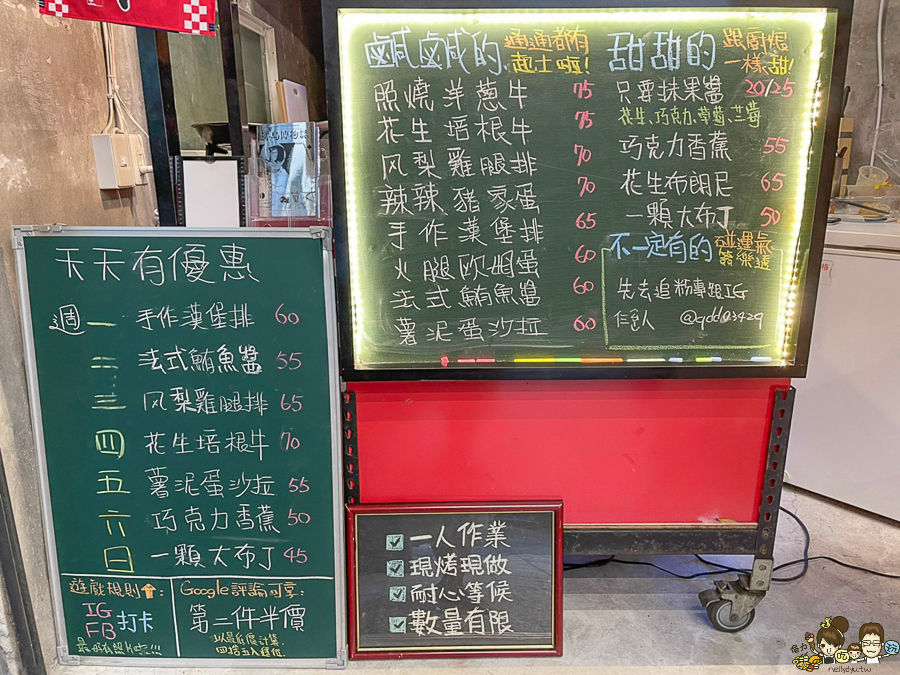 鹹鹹的 通通都有起士啦!
照燒洋蔥牛 75
花生培根牛 75
风梨雞腿排 70
辣辣豬家蛋 70
手作漢堡排 65
火腿欧姆蛋 60
法式鮪魚醬 60
薯泥蛋沙拉 60
甜甜的 跟廚娘一樣甜!
只要抹果醬 20/25
花生、巧克力、草莓、兰莓
巧克力香蕉 55
花生布朗尼 65
一顆大布丁 50
不一定有的 碰運氣
先去追粉專跟IG
天天有優惠
週一 手作漢堡排 60
二 法式鮪魚醬 55
三 风梨雞腿排 65
四 花生培根牛 70
五 薯泥蛋沙拉 55
六 巧克力香蕉 50
日 一顆大布丁 45
遊戲規則:
IG
FB 打卡
Google評論可享:
第二件半價
以最低價計算,
四捨五入進位.
一人作業
現烤現做
耐心等候
數量有限
nellydyu.tw